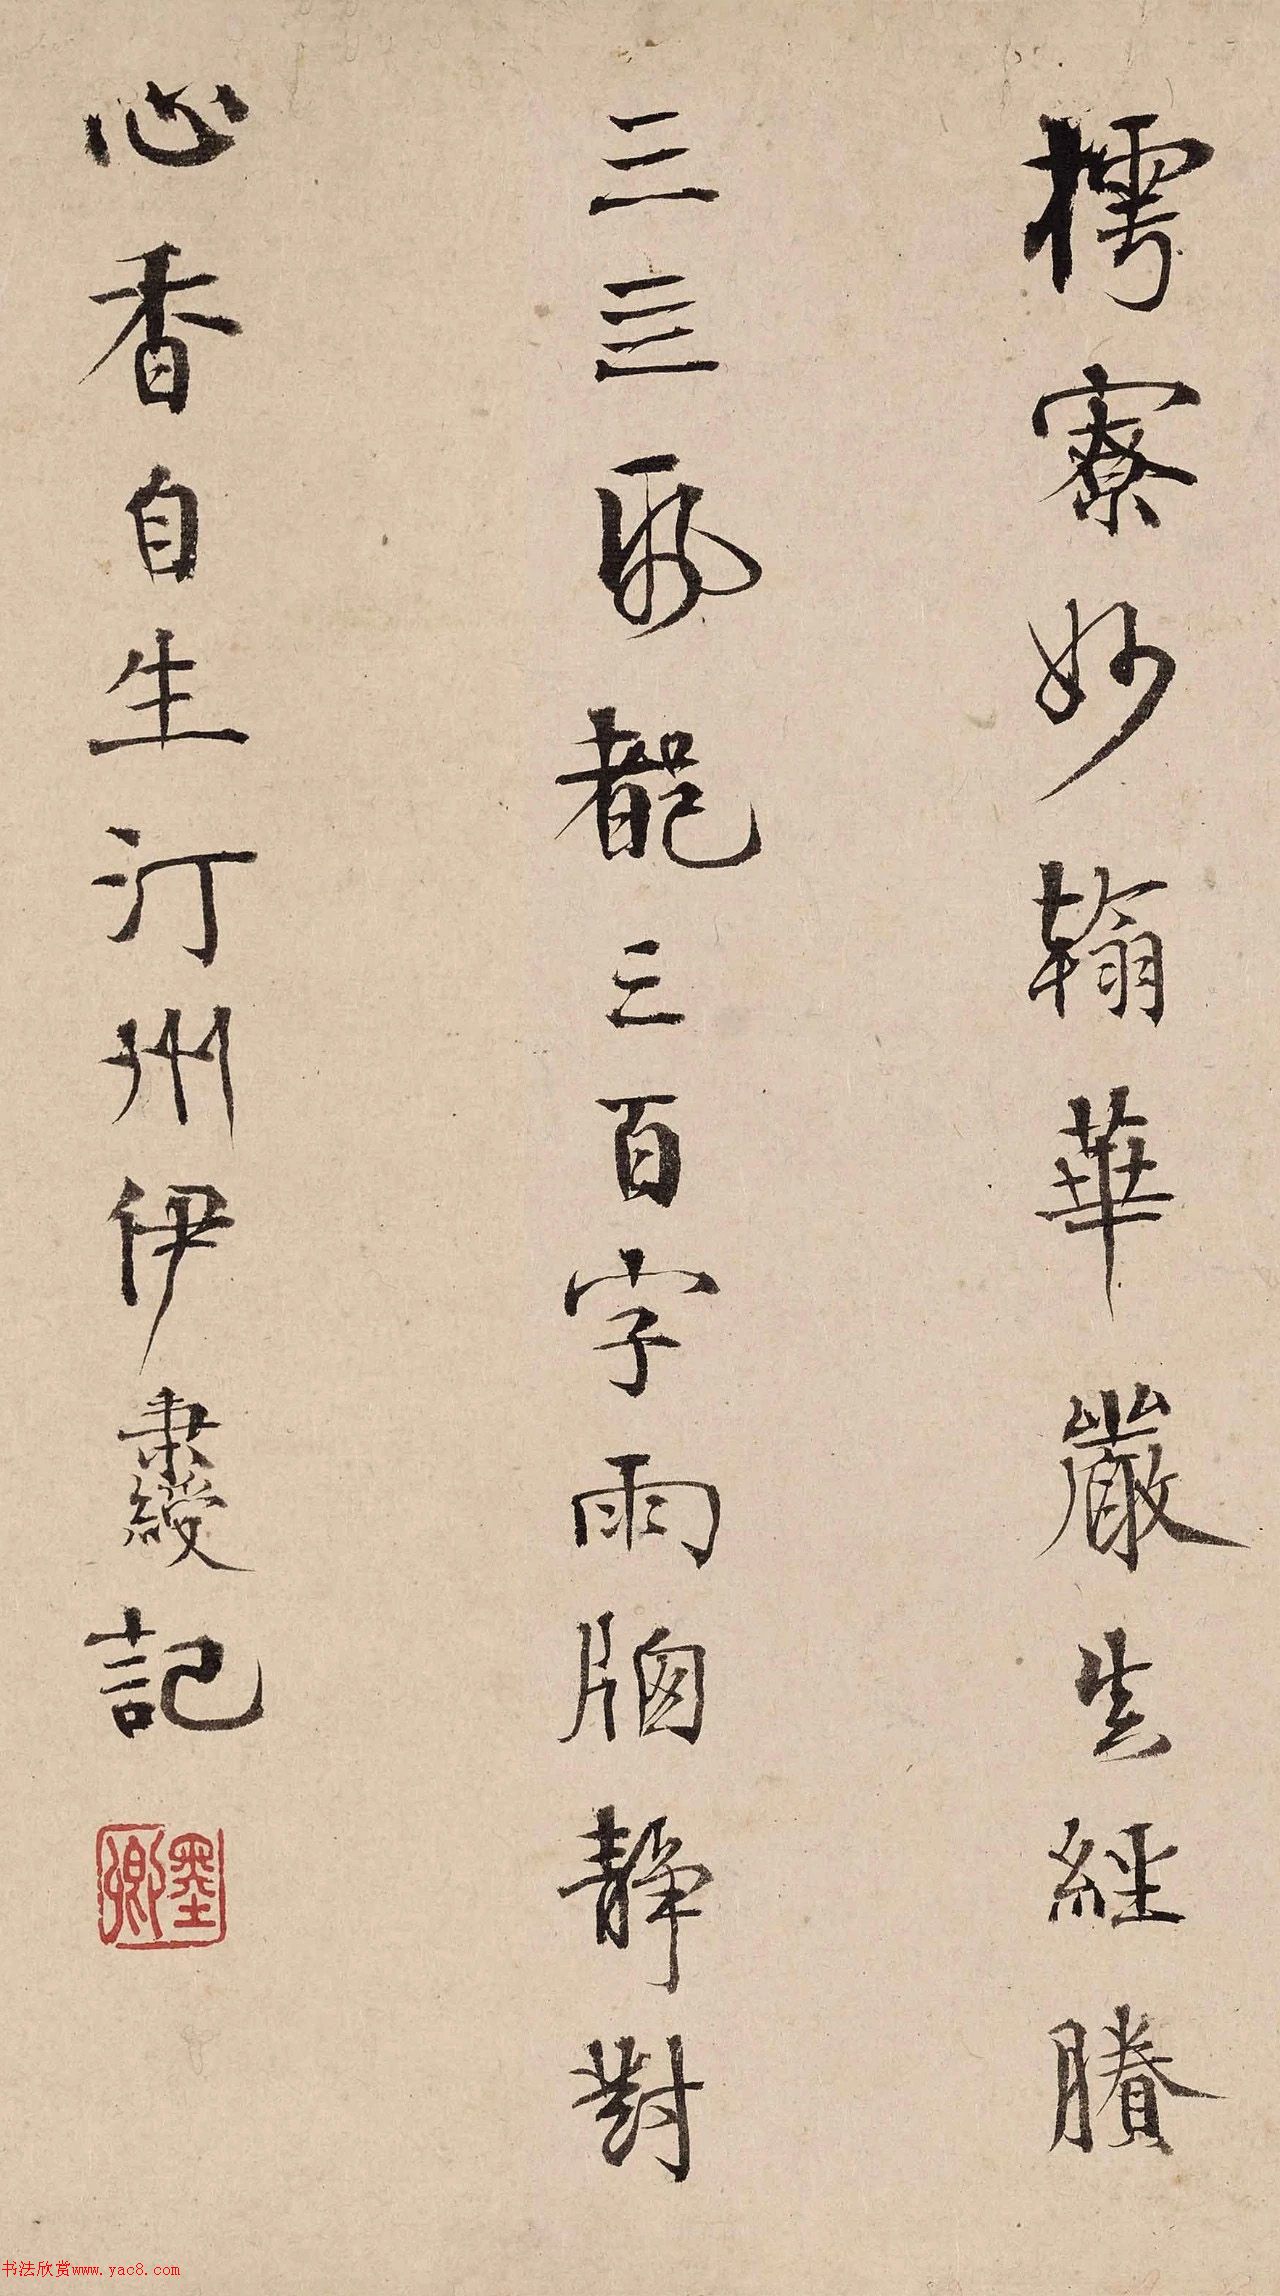 樗寮妙翰華嚴真經賸
二三都三百字雨牕靜對
心香自生汀州伊秉綬記
墨卿
书法欣赏www.yac8.com